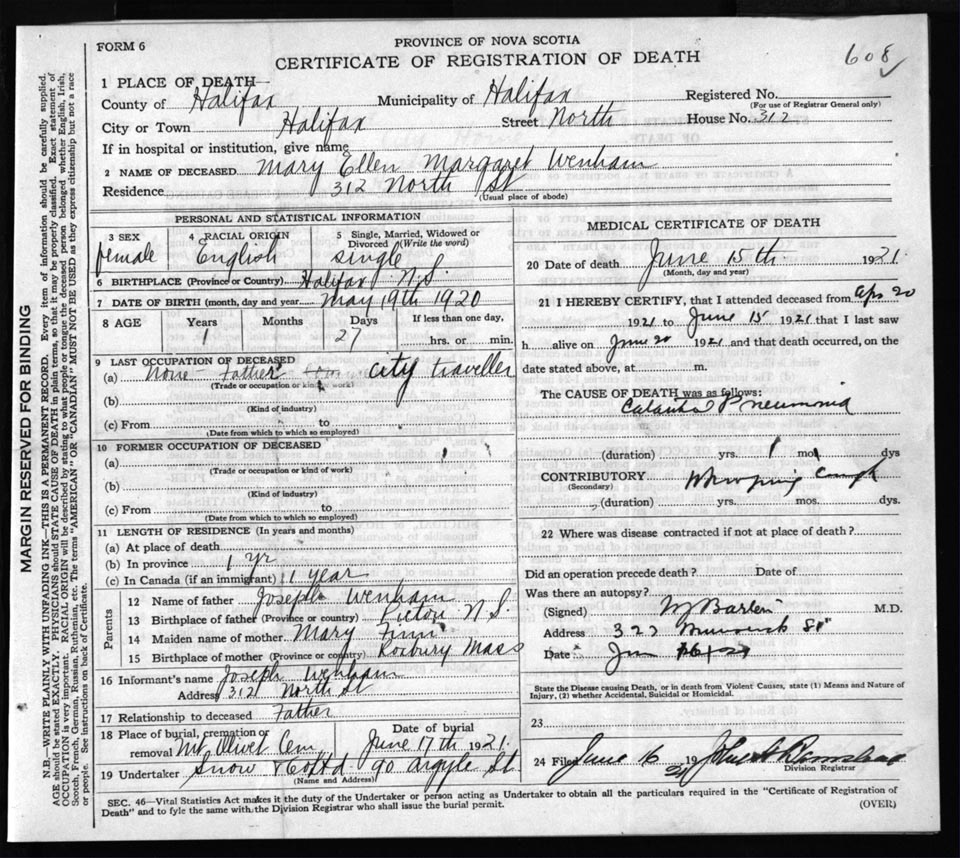 608
FORM 6
PROVINCE OF NOVA SCOTIA
CERTIFICATE OF REGISTRATION OF DEATH
1 PLACE OF DEATH
County of Halifax Municipality of Halifax Registered No.
(For use of Registrar General only)
City or Town Halifax Street North House No. 312
If in hospital or institution, give name
2 NAME OF DECEASED Mary Ellen Margaret Wenham
Residence 312 North St
(Usual place of abode)
PERSONAL AND STATISTICAL INFORMATION
3 SEX 4 RACIAL ORIGIN 5 Single, Married, Widowed or Divorced (Write the word)
female English single
6 BIRTHPLACE (Province or Country) Halifax N.S.
7 DATE OF BIRTH (month, day and year) May 19th 1920
8 AGE Years Months Days If less than one day,
1 27 hrs. or min.
9 LAST OCCUPATION OF DECEASED
(a) None - Father city traveller
(Trade or occupation or kind of work)
(b)
(Kind of industry)
(c) From to
(Date from which to which so employed)
10 FORMER OCCUPATION OF DECEASED
(a)
(Trade or occupation or kind of work)
(b)
(Kind of industry)
(c) From to
(Date from which to which so employed)
11 LENGTH OF RESIDENCE (In years and months)
(a) At place of death
(b) In province 1 yr
(c) In Canada (if an immigrant) 1 year
Parents
12 Name of father Joseph Wenham
13 Birthplace of father (Province or country) Pictou N.S.
14 Maiden name of mother Mary Finn
15 Birthplace of mother (Province or country) Roxbury Mass
16 Informant's name Joseph Wenham
Address 312 North St
17 Relationship to deceased Father
18 Place of burial, cremation or removal Mt Olivet Cem Date of burial June 17th 1921
19 Undertaker Snow & Co Ltd 90 Argyle St
(Name and Address)
MEDICAL CERTIFICATE OF DEATH
20 Date of death June 15th 1921
(Month, day and year)
21 I HEREBY CERTIFY, that I attended deceased from Apr 20
1921 to June 15 1921 that I last saw
h alive on June 20 1921 and that death occurred, on the
date stated above, at m.
The CAUSE OF DEATH was as follows:
Pneumonia
(duration) yrs. 1 mos. dys
CONTRIBUTORY Whooping Cough
(Secondary)
(duration) yrs. mos. dys.
22 Where was disease contracted if not at place of death?
Did an operation precede death? Date of
Was there an autopsy?
(Signed) M.D.
Address 327 St
Date
State the Disease causing Death, or in death from Violent Causes, state (1) Means and Nature of
Injury, (2) whether Accidental, Suicidal or Homicidal.
23
24 Filed June 16 1921
Division Registrar
SEC. 46—Vital Statistics Act makes it the duty of the Undertaker or person acting as Undertaker to obtain all the particulars required in the "Certificate of Registration of
Death" and to fyle the same with the Division Registrar who shall issue the burial permit.
(OVER)
MARGIN RESERVED FOR BINDING
N.B.—WRITE PLAINLY WITH UNFADING INK—THIS IS A PERMANENT RECORD. Every item of information should be carefully supplied.
AGE should be stated EXACTLY. PHYSICIANS should STATE CAUSE OF DEATH in plain terms, so that it may be properly classified. Exact statement of
OCCUPATION is very important. RACIAL ORIGIN will be described by stating to what people or tongue the deceased person belonged whether English, Irish,
Scotch, French, German, Russian, Ruthenian, etc. The terms "AMERICAN" OR "CANADIAN" MUST NOT BE USED as they express citizenship but not a race
or people. See instructions on back of Certificate.